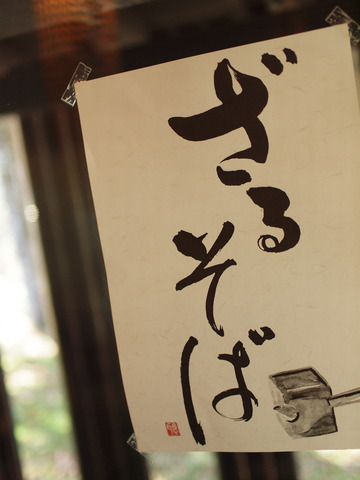 ざるそば